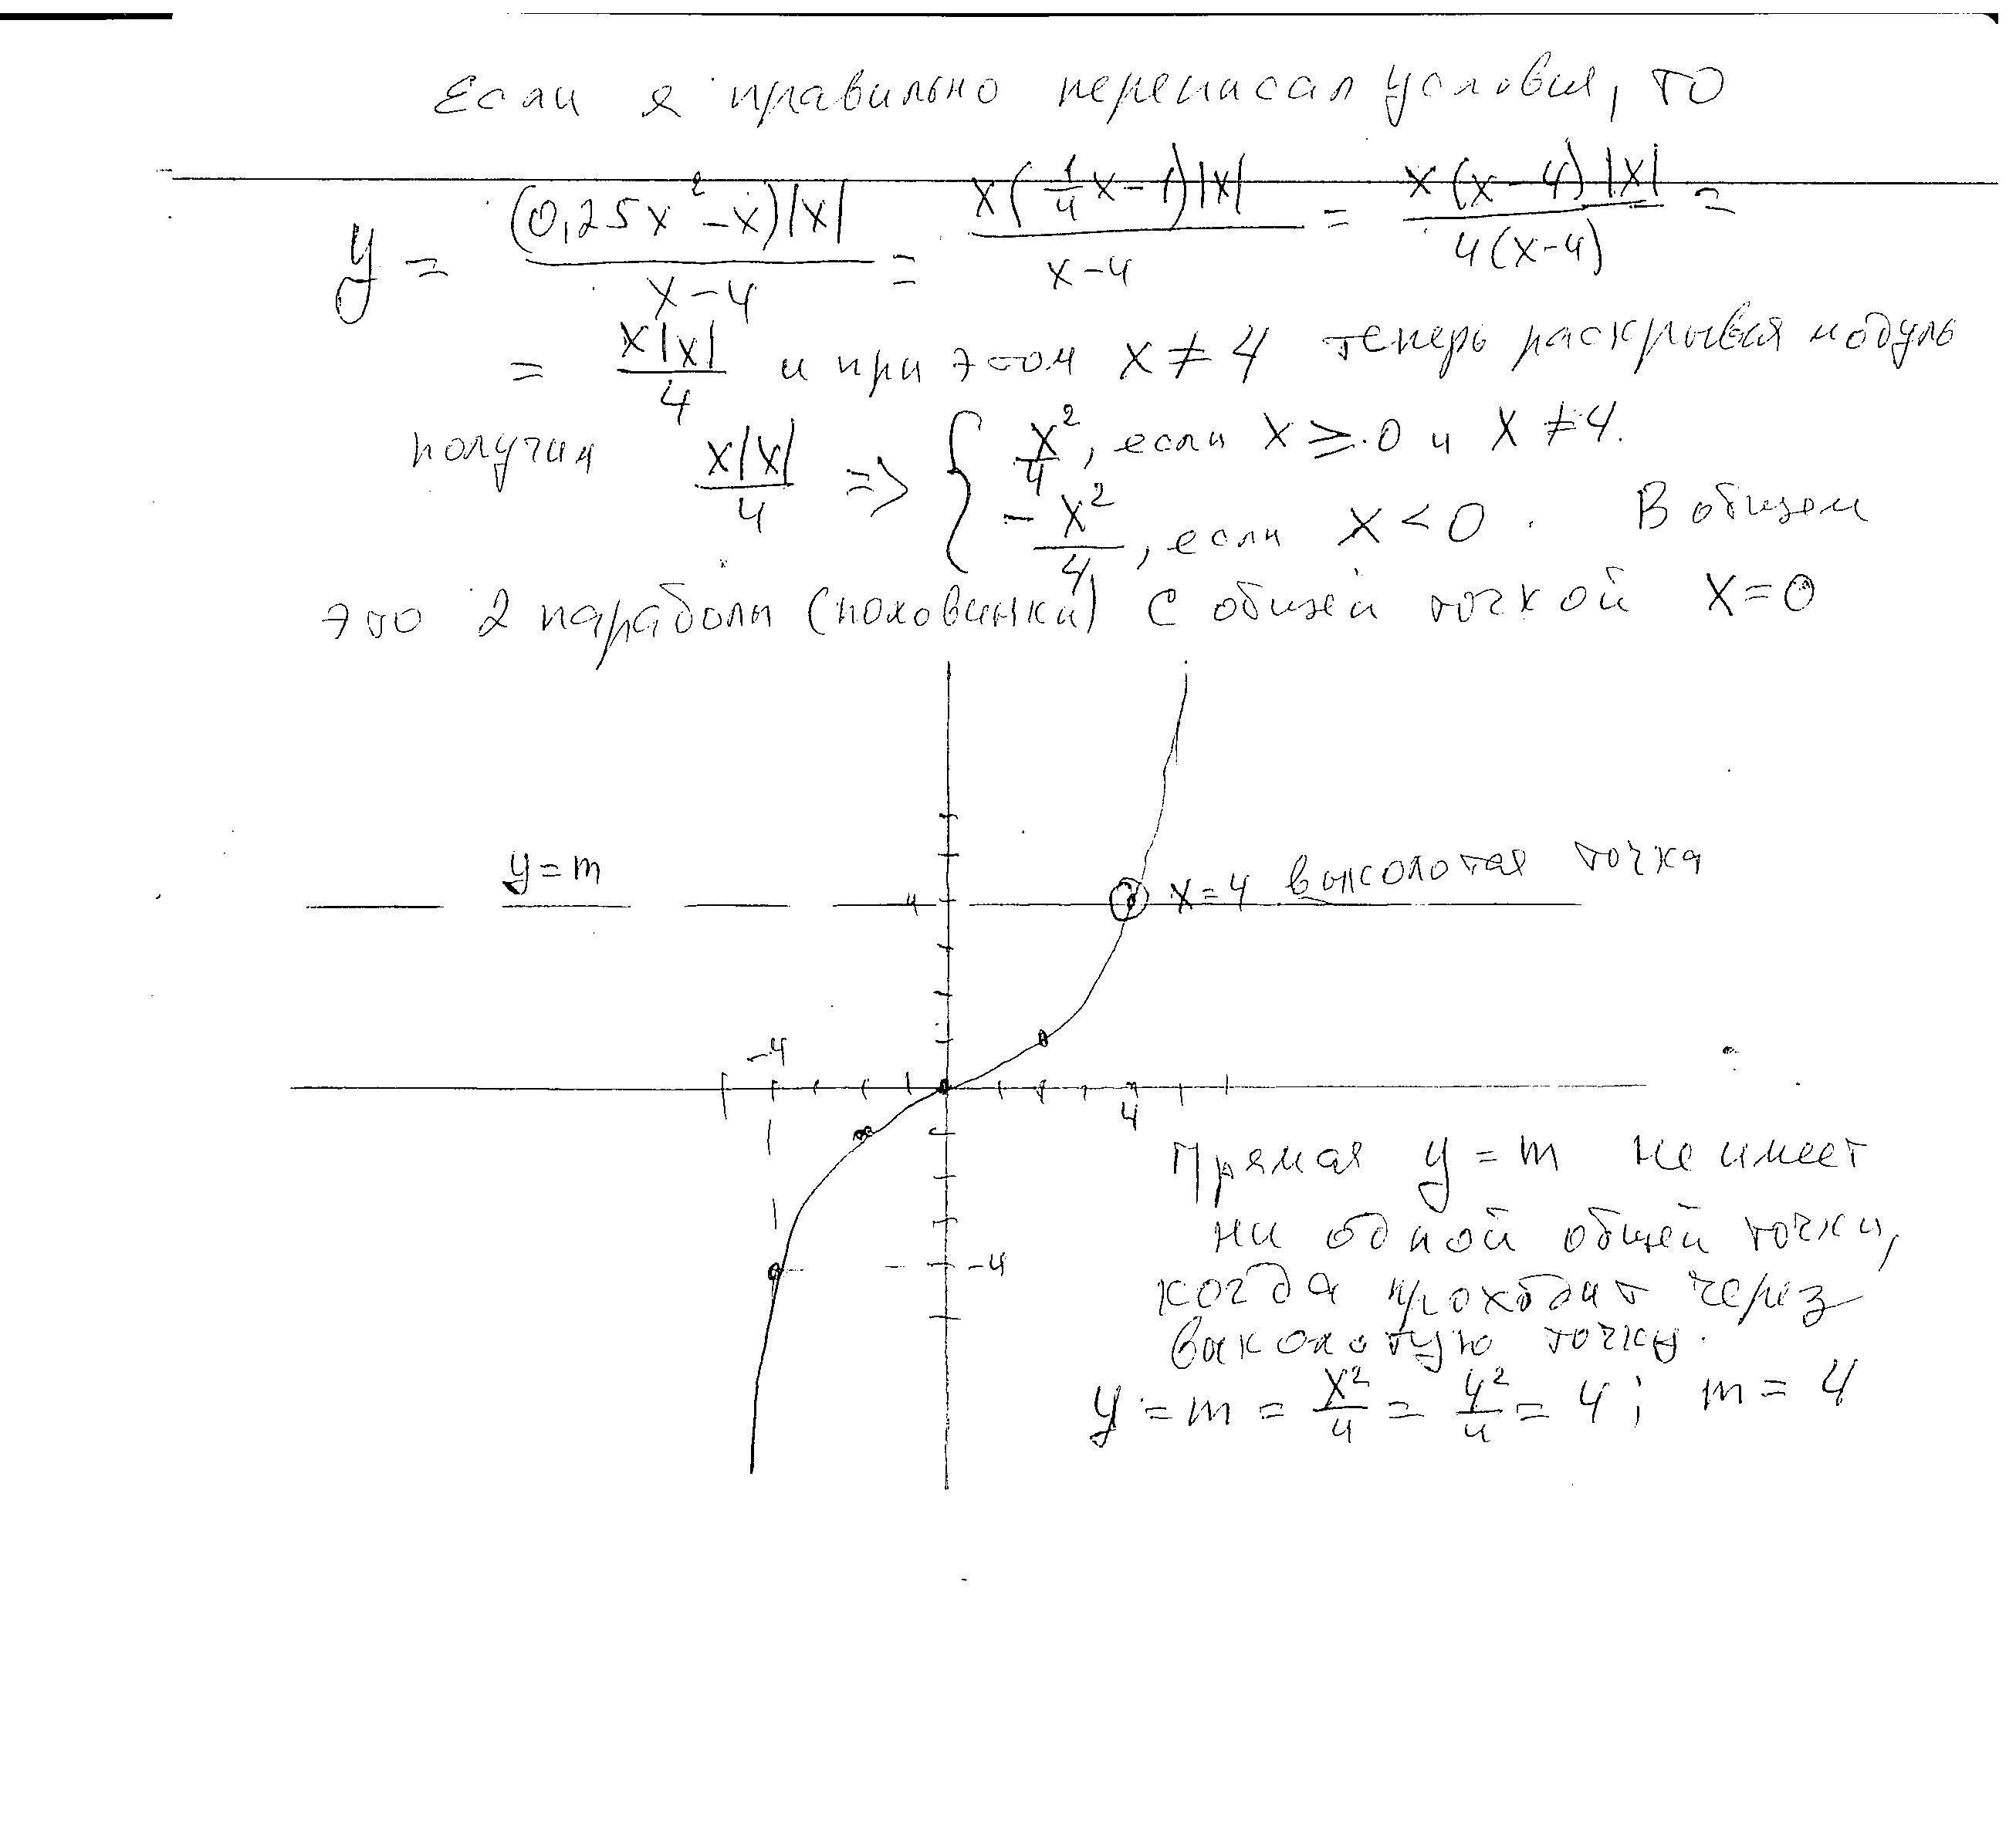 Если я правильно переписал условия, то
y = (0,25x² - x)|x| / x-4 = x(1/4 x - 1)|x| / x-4 = x(x-4)|x| / 4(x-4) =
= x|x| / 4 и при этом x ≠ 4 теперь раскрывая модуль
получим x|x| / 4 => { x²/4, если x ≥ 0 и x ≠ 4.
- x²/4, если x < 0. В общем
это 2 параболы (половинки) с общей точкой x = 0
y = m
4
x = 4 выколотая точка
-4
4
-4
Прямая y = m не имеет
ни одной общей точки,
когда проходит через
выколотую точку.
y = m = x²/4 = 4²/4 = 4; m = 4